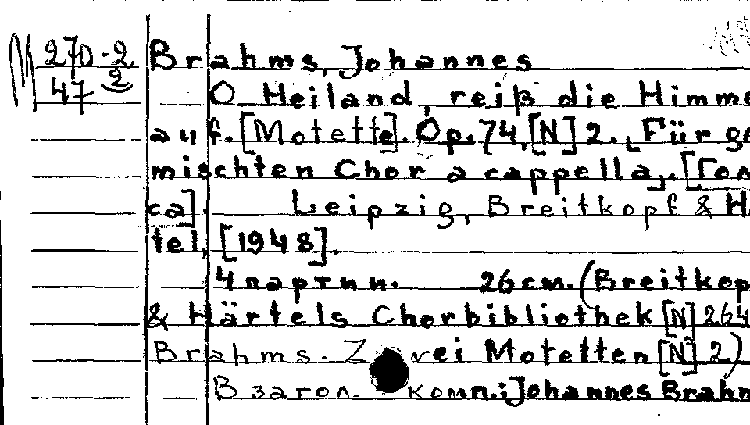 M 27D-2. Brahms, Johannes
47 2 O Heiland, reiß die Himme
auf. [Motette]. Op. 74, [N] 2. [Für ge
mischten Chor a cappella]. [Голо
са]. Leipzig, Breitkopf & H
tel, [1948].
4 партии. 26 см. (Breitkop
& Härtels Chorbibliothek [N] 264
Brahms. Zwei Motetten [N] 2)
В загол. комп.: Johannes Brahm